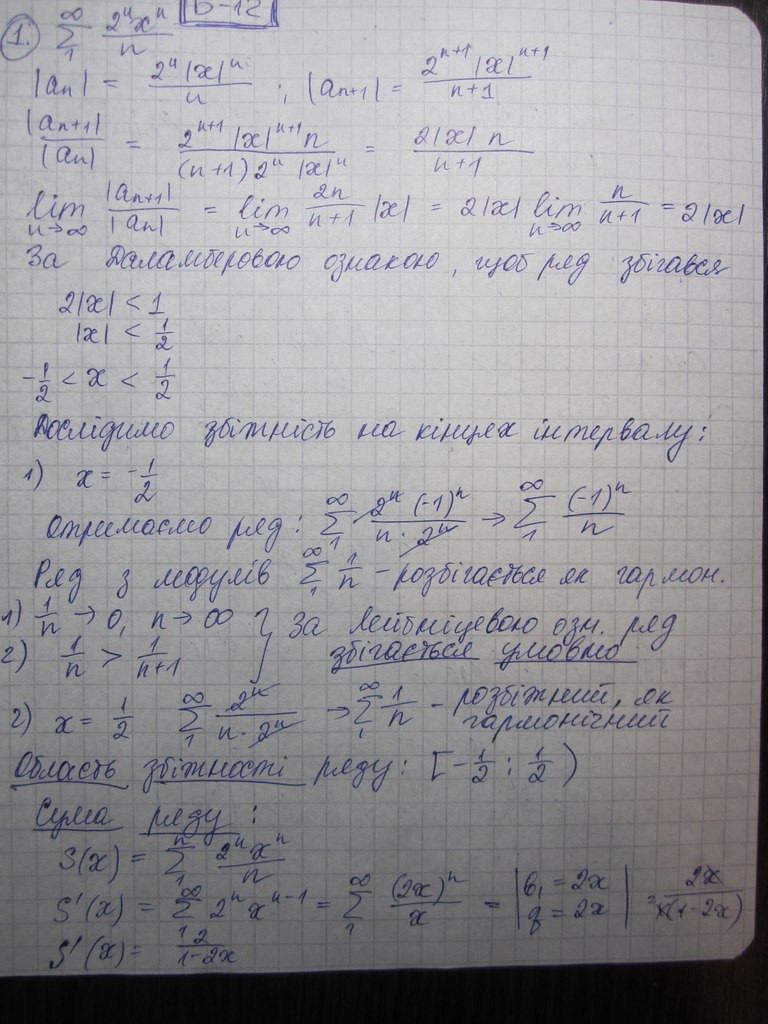 В-12
1. ∑_1^∞ 2ⁿxⁿ/n
|aₙ| = 2ⁿ|x|ⁿ/n ; |aₙ₊₁| = 2ⁿ⁺¹|x|ⁿ⁺¹/(n+1)
|aₙ₊₁|/|aₙ| = 2ⁿ⁺¹|x|ⁿ⁺¹n/((n+1)2ⁿ|x|ⁿ) = 2|x|n/(n+1)
lim_{n→∞} |aₙ₊₁|/|aₙ| = lim_{n→∞} 2n/(n+1) |x| = 2|x| lim_{n→∞} n/(n+1) = 2|x|
За Даламберовою ознакою, щоб ряд збігався
2|x| < 1
|x| < 1/2
-1/2 < x < 1/2
Дослідимо збіжність на кінцях інтервалу:
1) x = -1/2
Отримаємо ряд: ∑_1^∞ 2ⁿ(-1)ⁿ/(n·2ⁿ) → ∑_1^∞ (-1)ⁿ/n
Ряд з модулів ∑_1^∞ 1/n - розбігається як гармон.
1) 1/n → 0, n → ∞ } За Лейбніцевою озн. ряд
2) 1/n > 1/(n+1) збігається умовно
2) x = 1/2 ∑_1^∞ 2ⁿ/(n·2ⁿ) → ∑_1^∞ 1/n - розбіжний, як гармонічний
Область збіжності ряду: [-1/2 ; 1/2)
Сума ряду:
S(x) = ∑_1^n 2ⁿxⁿ/n
S'(x) = ∑_1^∞ 2ⁿxⁿ⁻¹ = ∑_1^∞ (2x)ⁿ/x = | b₁ = 2x q = 2x | = 2x/(x(1-2x))
S'(x) = 2/(1-2x)